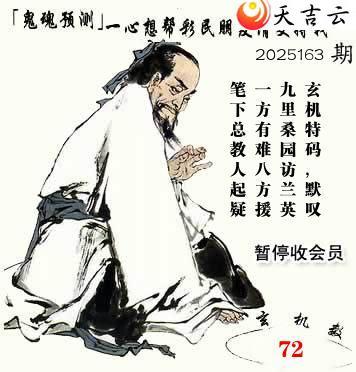 「鬼魂预测」一心想帮彩民朋友
天吉云
2025163 期
玄机特码，默叹
九里桑园访兰英
一方有难八方援
笔下总教人起疑
暂停收会员
玄机
72